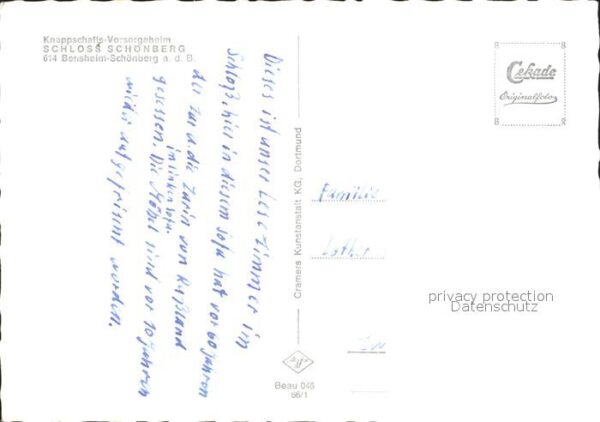 Knappschafts-Vorsorgeheim
SCHLOSS SCHÖNBERG
614 Bensheim-Schönberg a. d. B.
Dieses ist unser Lesezimmer im
Schloß, hier in diesem Sofa hat vor 60 Jahren
der Zar u. die Zarin von Rußland
im linken Sofa.
gesessen. Die Möbel sind vor 10 Jahren
wieder aufgefrischt worden.
Cramers Kunstanstalt KG, Dortmund
Beau 046
66/1
Cekade
Originalfoto
Familie
Lothar
privacy protection
Datenschutz